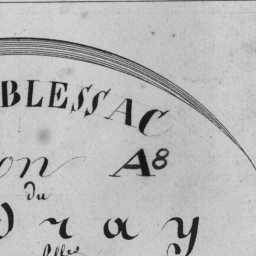 BLESSAC
on A8
du
ray